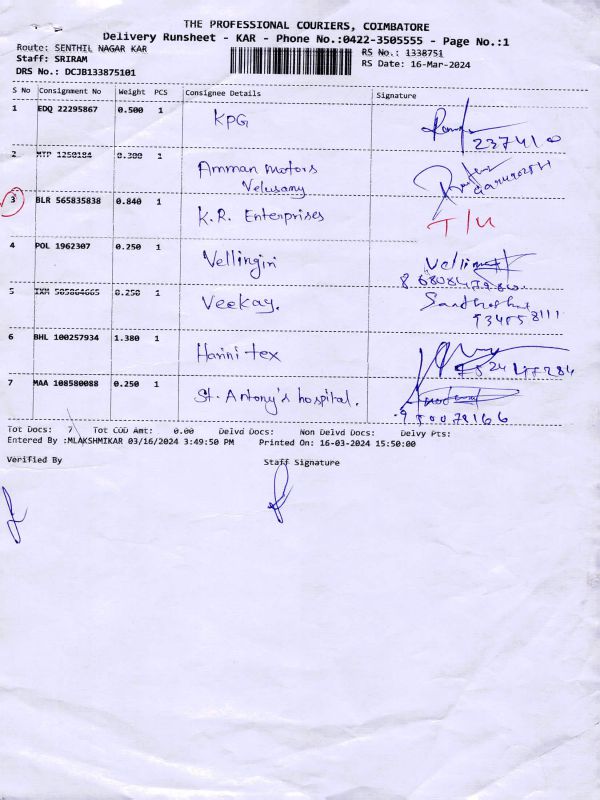 THE PROFESSIONAL COURIERS, COIMBATORE
Delivery Runsheet - KAR - Phone No.:0422-3505555 - Page No.:1
Route: SENTHIL NAGAR KAR
RS No.: 1338751
Staff: SRIRAM
RS Date: 16-Mar-2024
DRS No.: DCJB133875101
S No Consignment No Weight PCS Consignee Details Signature
1 EDQ 22295867 0.500 1 KPG
2374100
2 MTP 1250184 0.300 1 Amman motors
Velusamy
3 BLR 565835838 0.840 1 K.R. Enterprises T/U
4 POL 1962307 0.250 1 Vellingiri
5 IXM 505864665 0.250 1 Veekay.
6 BHL 100257934 1.380 1 Harini tex
7 MAA 108580088 0.250 1 St. Antony's hospital.
Tot Docs: 7 Tot COD Amt: 0.00 Delvd Docs: Non Delvd Docs: Delvy Pts:
Entered By :MLAKSHMIKAR 03/16/2024 3:49:50 PM Printed On: 16-03-2024 15:50:00
Verified By Staff Signature